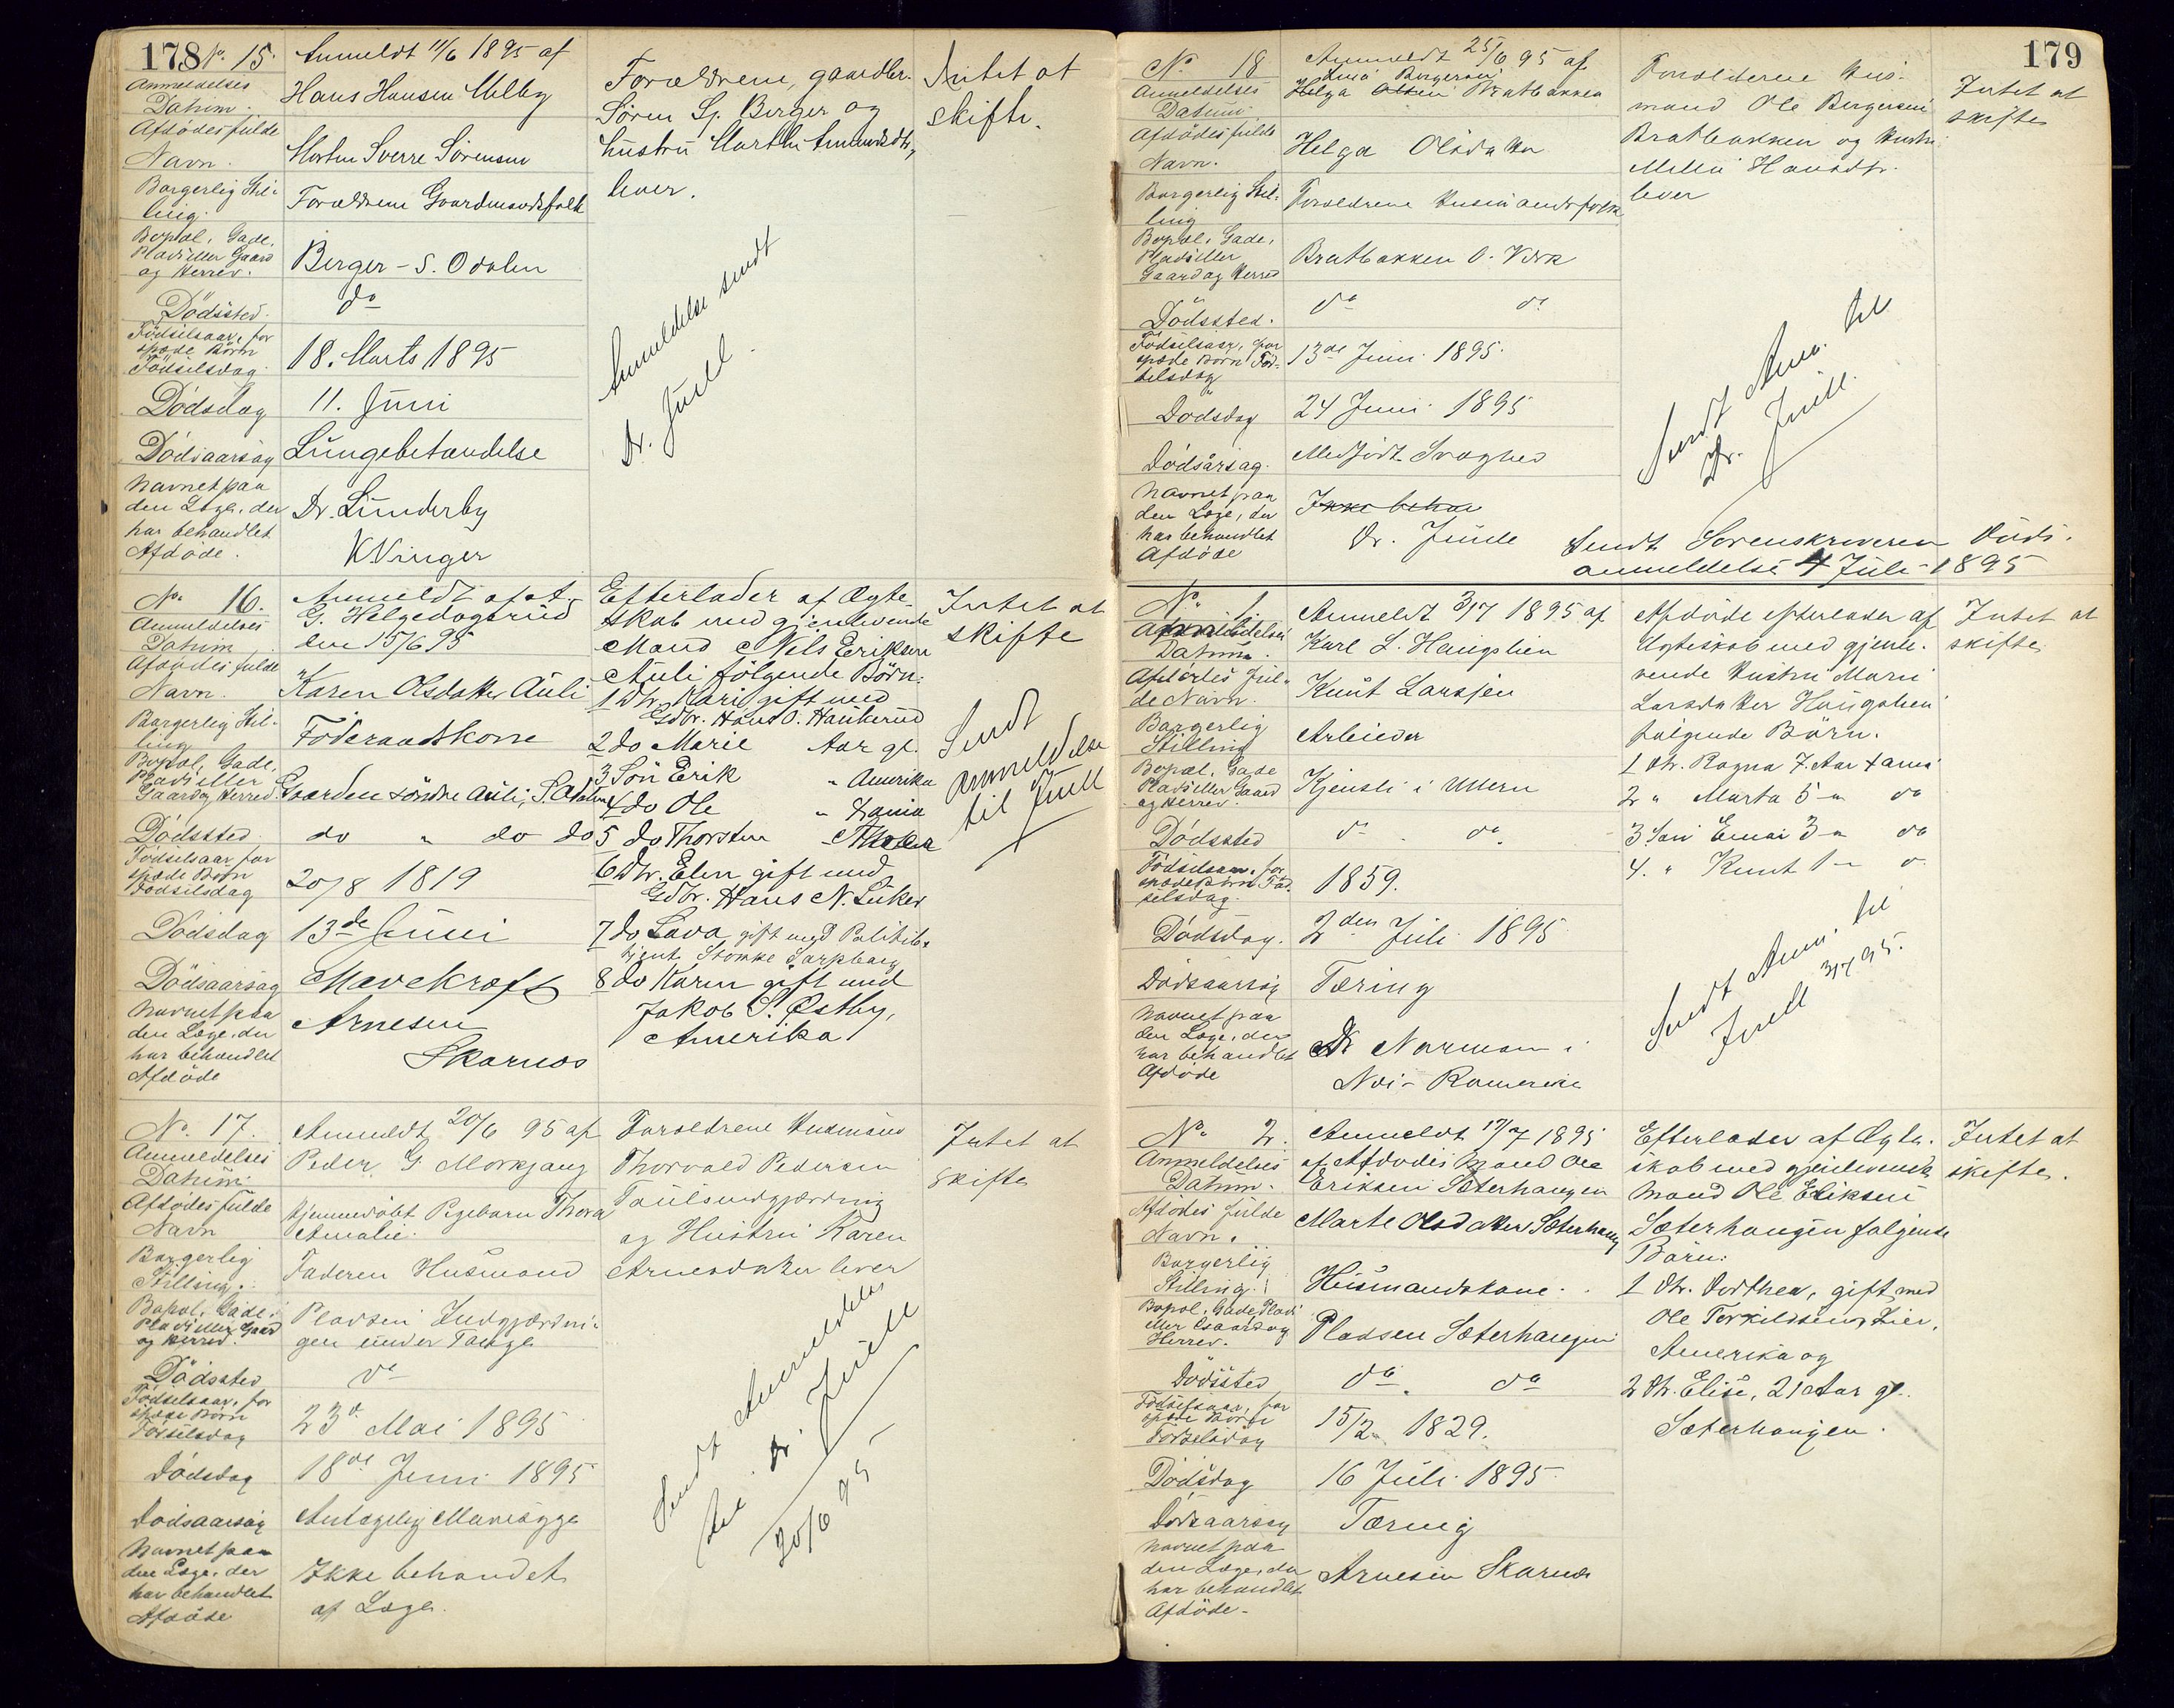 178
No. 15.
Anmeldelses
Datum.
Anmeldt 11/6 1895 af
Hans Hansen Melby
Afdødes fulde
Navn.
Morten Sverre Sörensen
Borgerlig Stil-
ling.
Forældrene Gaardmandsfolk
Bopæl, Gade,
Plads eller Gaard
og Herred.
Berger - S. Odalen
Dödssted.
do
Födselsaar, for
spæde Börn
Födselsdag.
18. Marts 1895
Dödsdag
11. Juni
Dödsaarsag
Lungebetændelse
Navnet paa
den Læge, der
har behandlet
Afdöde.
Dr. Lunderby
K Vinger
Forældrene, gaardbr.
Sören Berger og
hustru Marthe
lever.
Anmeldelse sendt
Dr. Juell.
Intet at
skifte.
No. 16.
Anmeldelses
Datum
Anmeldt af
G. Helgedagsrud
den 15/6 95
Afdödes fulde
Navn.
Karen Olsdatter Auli
Borgerlig Stil-
ling
Föderaadskone
Bopæl, Gade,
Plads eller
Gaard og Herred.
Gaarden söndre Auli, S. Odalen
Dödssted
do " do do
Födselsaar for
spæde Börn
Födselsdag
20/8 1819
Dödsdag
13de Juni
Dödsaarsag
Mavekræft
Navnet paa
den Læge, der
har behandlet
Afdöde
Arnesen
Skarnes
Efterlader af Ægte-
skab med gjenlevende
Mand Nels Eriksen
Auli fölgende Börn:
1 Dtr. Kari gift med
Gdbr. Hans O. Haukerud
2 do Marie Aar gl.
3 Sön Erik " Amerika
4 do Ole "
5 do Thorsten
6 Dtr. Elen gift med
Gdbr. Hans N.
7 do Lava gift med Politibe-
tjent Sarpsborg
8 do Karen gift med
Jakob S. Østby,
Amerika
Intet at
skifte
Sendt
anmeldelse
til Juell
No. 17.
Anmeldelses
Datum.
Anmeldt 20/6 95 af
Peder G. Morkgang
Afdödes fulde
Navn
Hjemmedöbt Pigebarn Thora
Amalie.
Borgerlig
Stilling.
Faderen Husmand
Bopæl, Gade,
Plads eller Gaard
og Herred.
Pladsen Indgjærdnin-
gen under
Dödssted
do
Födselsaar, for
spæde Börn
Födselsdag
23de Mai 1895
Dödsdag
18de Juni 1895
Dödsaarsag
Antagelig Mavesyge
Navnet paa
den Læge, der
har behandlet
Afdöde
Ikke behandlet
af Læge.
Forældrene Husmand
Thorvald Pedersen
og Hustru Karen
Arnesdatter lever
Sendt Anmeldelse
til Dr. Juell
20/6 95
Intet at
skifte
179
No. 18
Anmeldelses
Datum
Anmeldt 25/6 95 af
Bergersen
Helga Olsen Bratbakken
Afdödes fulde
Navn.
Helga Olsdatter
Borgerlig Stil-
ling
Forældrene Husmandsfolk
Bopæl, Gade,
Plads eller
Gaard og Herred
Bratbakken O. Værk
Dödssted.
do do
Födselsaar, for
spæde Börn Föd-
selsdag
13de Juni 1895.
Dödsdag
24 Juni 1895
Dödsårsag.
Medfödt Svaghed
Navnet paa
den Læge, der
har behandlet
Afdöde
Ikke behan
Dr. Juell
Forældrene Hus-
mand Ole Bergersen
Bratbakken og Hustru
Hansdtr.
lever
Sendt Anm. til
Dr. Juell.
Sendt Sorenskriveren Döds-
anmeldelse 4 Juli 1895
Intet at
skifte
No. 1.
Anmeldelses
Datum.
Anmeldt 3/7 1895 af
Karl L. Haugslien
Afdödes Ful-
de Navn.
Knut Larssen
Borgerlig
Stilling
Arbeider
Bopæl, Gade
Plads eller Gaard
og Herred.
Kjensli i Ullern
Dödssted
do do.
Födselsaar, for
spæde Börn Föd-
selsdag.
1859.
Dödsdag.
2den Juli 1895
Dödsaarsag
Tæring
Navnet paa
den Læge, der
har behandlet
Afdöde
Dr Norman i
Nes Romerike
Afdöde efterlader af
Ægteskab med gjenle-
vende Hustru Mari
Larsdatter Haugslien
fölgende Börn.
1 Dtr. Ragna 7 Aar
2 " Marta 5 " do
3 Sön Einar 3 " do
4. " Knut 1 " do
Sendt Anm. til
Juell 3/7 95.
Intet at
skifte
No. 2.
Anmeldelses
Datum.
Anmeldt 17/7 1895
af Afdödes Mand Ole
Eriksen Sæterhaugen
Afdödes fulde
Navn.
Marte Olsdatter Sæterhaug
Borgerlig
Stilling.
Husmandskone.
Bopæl, Gade Plads
eller Gaard og
Herred.
Pladsen Sæterhaugen
Dödssted
do. do
Födselsaar, for
spæde Börn
Födselsdag
15/2 1829.
Dödsdag
16 Juli 1895.
Dödsaarsag
Tæring
Navnet paa
den Læge, der
har behandlet
Afdöde.
Arnesen Skarnes
Efterlader af Ægte-
skab med gjenlevende
Mand Ole Eriksen
Sæterhaugen fölgende
Börn:
1 Dtr. Dorthea, gift med
Ole Terkildsen Lier,
Amerika og
2 Dtr. Elise, 21 Aar gl.
Sæterhaugen.
Intet at
skifte.